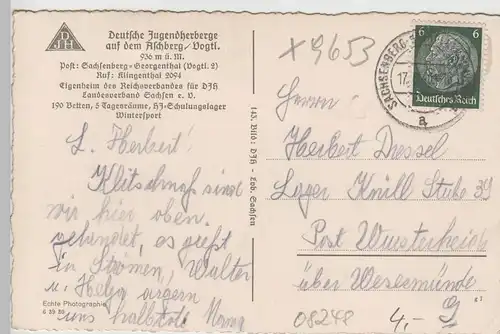 DJH
Deutsche Jugendherberge
auf dem Aschberg/Vogtl.
936 m ü. M.
Post: Sachsenberg-Georgenthal (Vogtl. 2)
Ruf: Klingenthal 2094
Eigenheim des Reichsverbandes für DJH
Landesverband Sachsen e. V.
190 Betten, 5 Tagesräume, HJ-Schulungslager
Wintersport
L. Herbert!
Klitschnaß sind
wir hier oben
gelandet, es gießt
in Strömen, Walter
u. Helga ärgern
uns halbtot.
Echte Photographie
143. Bild: DJH - Lvb. Sachsen
x 9653
6 6
Deutsches Reich
SACHSENBERG-
17.
a
Herrn
Herbert Drossel
Lager Knill Stube 39
Post
über Wesermünde
08248
4,-